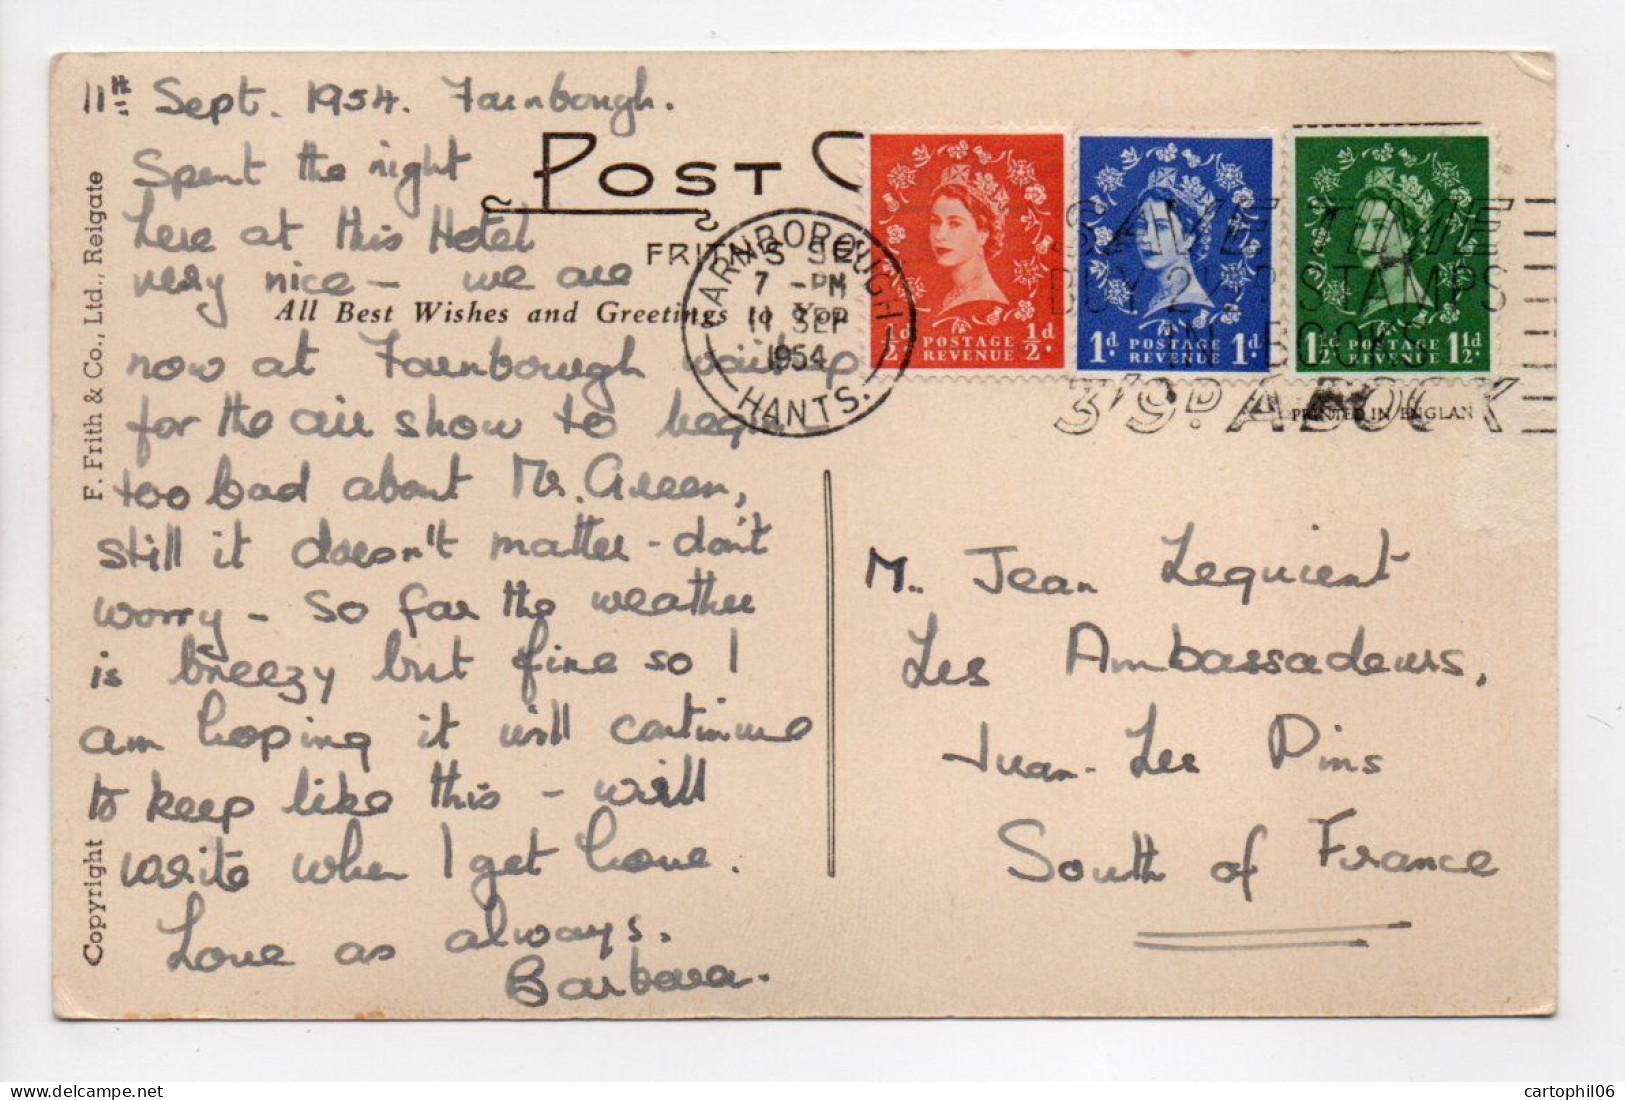 11th Sept. 1954. Farnbough.
Spent the night
here at this Hotel
very nice - we are
now at Farnborough waiting
for the air show to begin
too bad about Mr. Green,
still it doesn't matter - don't
worry - so far the weather
is breezy but fine so I
am hoping it will continue
to keep like this - will
write when I get home.
Love as always.
Barbara.
POST C
FRITH'S SE
All Best Wishes and Greetings to You
F. Frith & Co., Ltd., Reigate
Copyright
FARNBOROUGH
7 - PM
11 SEP
1954
HANTS.
½d. POSTAGE REVENUE ½d.
1d. POSTAGE REVENUE 1d.
1½d. POSTAGE REVENUE 1½d.
SAVE TIME
BUY 2½D STAMPS
IN BOOKS
3'9D. A BOOK
PRINTED IN ENGLAN
M. Jean Lequient
Les Ambassadeurs,
Juan-Les Pins
South of France
cartophil06